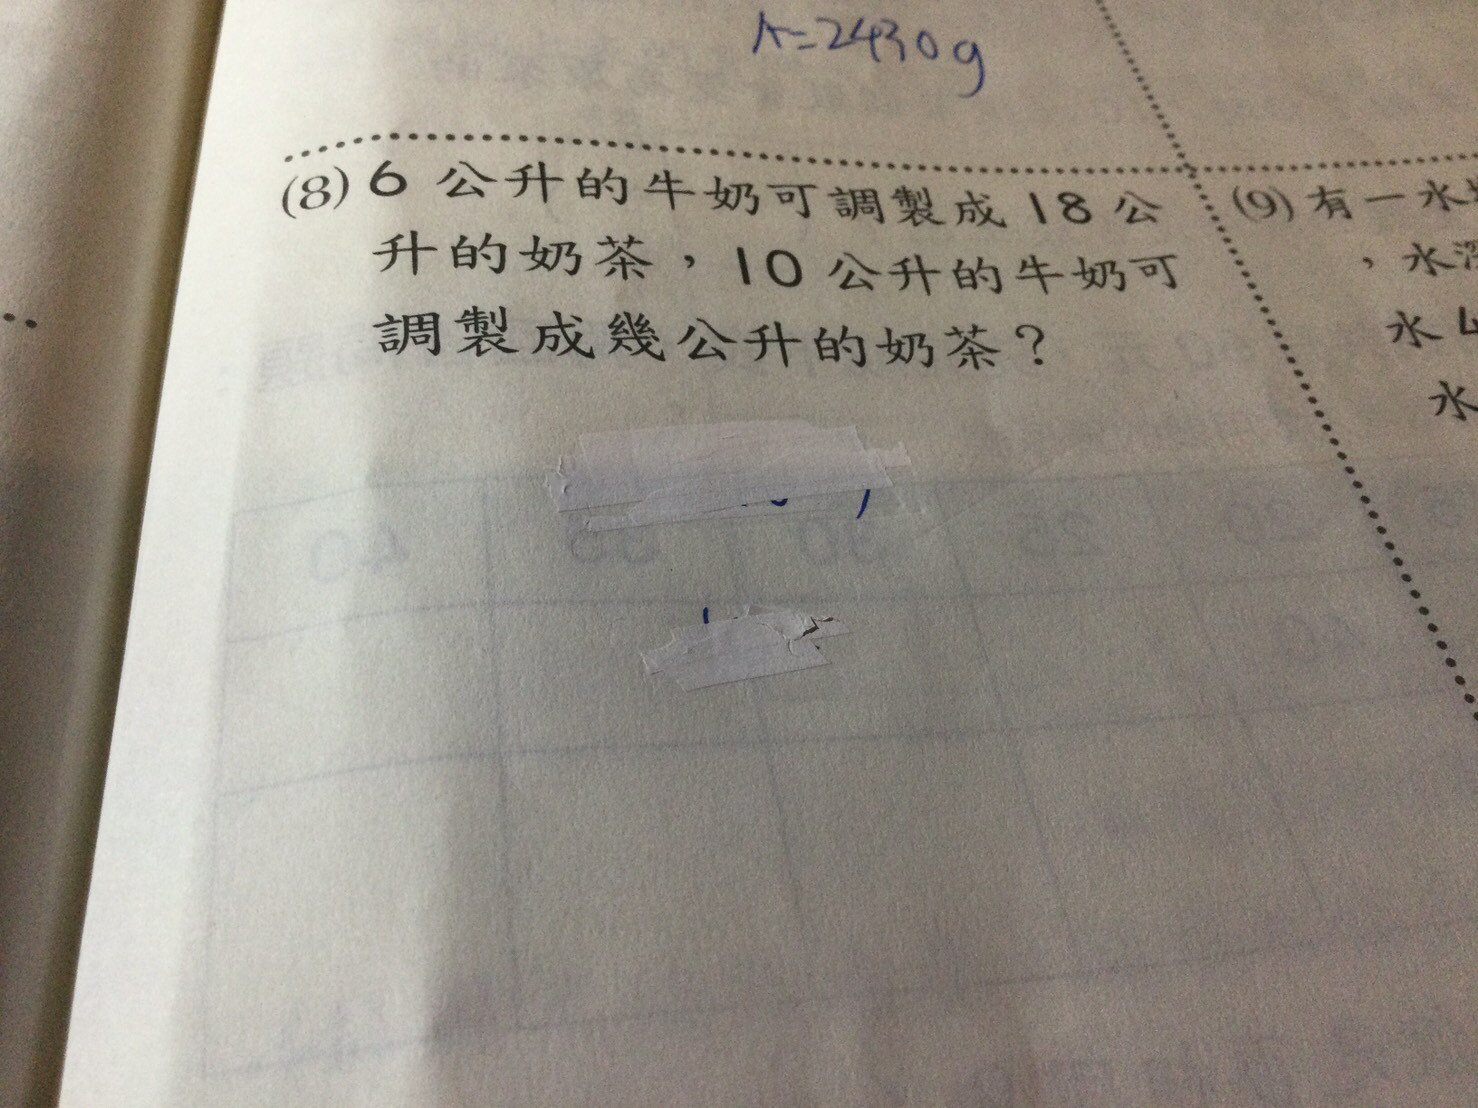 A=2430g
(8) 6 公升的牛奶可調製成 18 公
升的奶茶，10 公升的牛奶可
調製成幾公升的奶茶？
(9) 有一水
，水深
水 4
水